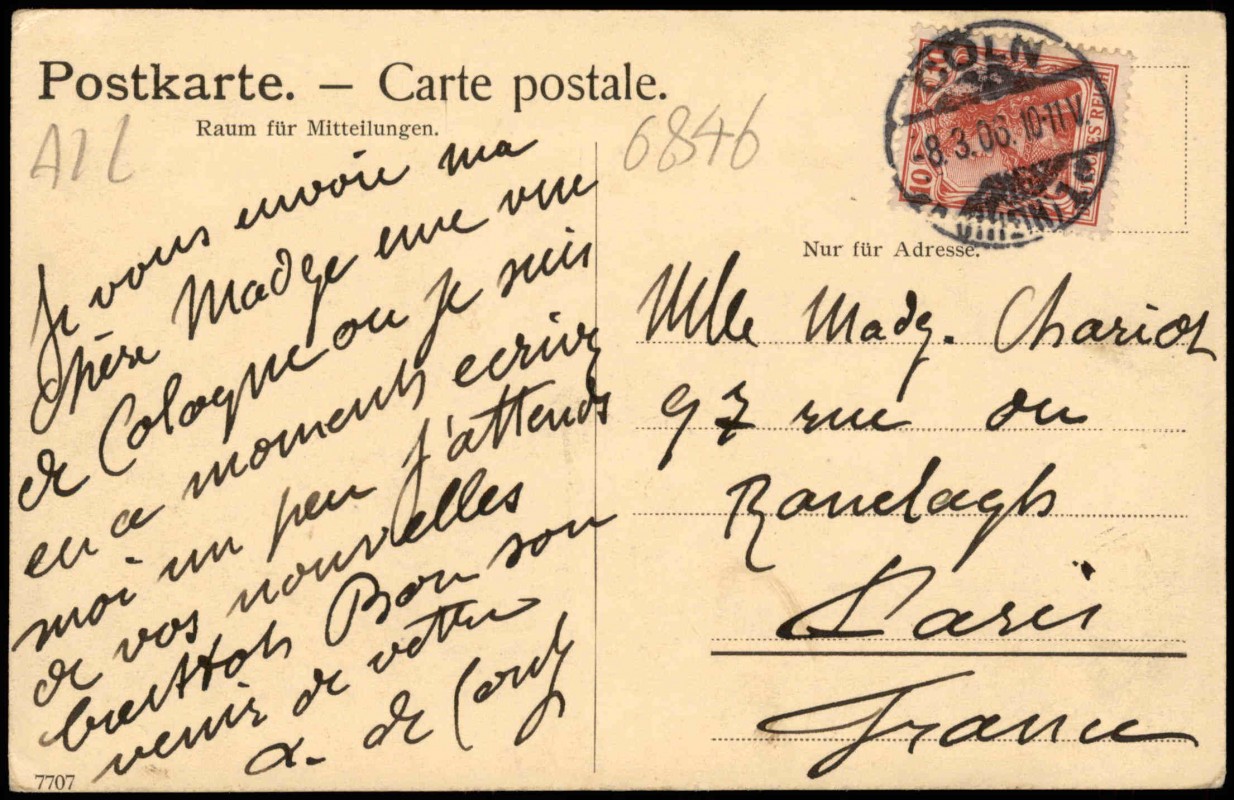 Postkarte. — Carte postale.
Raum für Mitteilungen.
A12
6846
CÖLN
8.3.06.10-11V.
10
Nur für Adresse.
Je vous envoie ma
chère Madge une vue
de Cologne ou je suis
en a moments ecrivez
moi un peu j'attends
de vos nouvelles
bientot Bon sou
venir de votre
a. de
Mlle Madg. Chariot
97 rue du
Ranelagh
Paris
France
7707